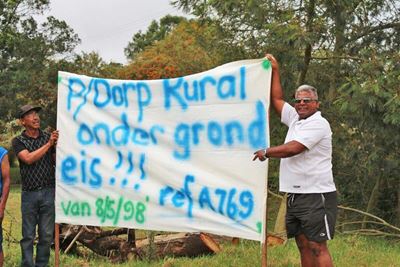 P/Dorp Kural
onder grond
eis!!! ref A769
van 8/5/98'